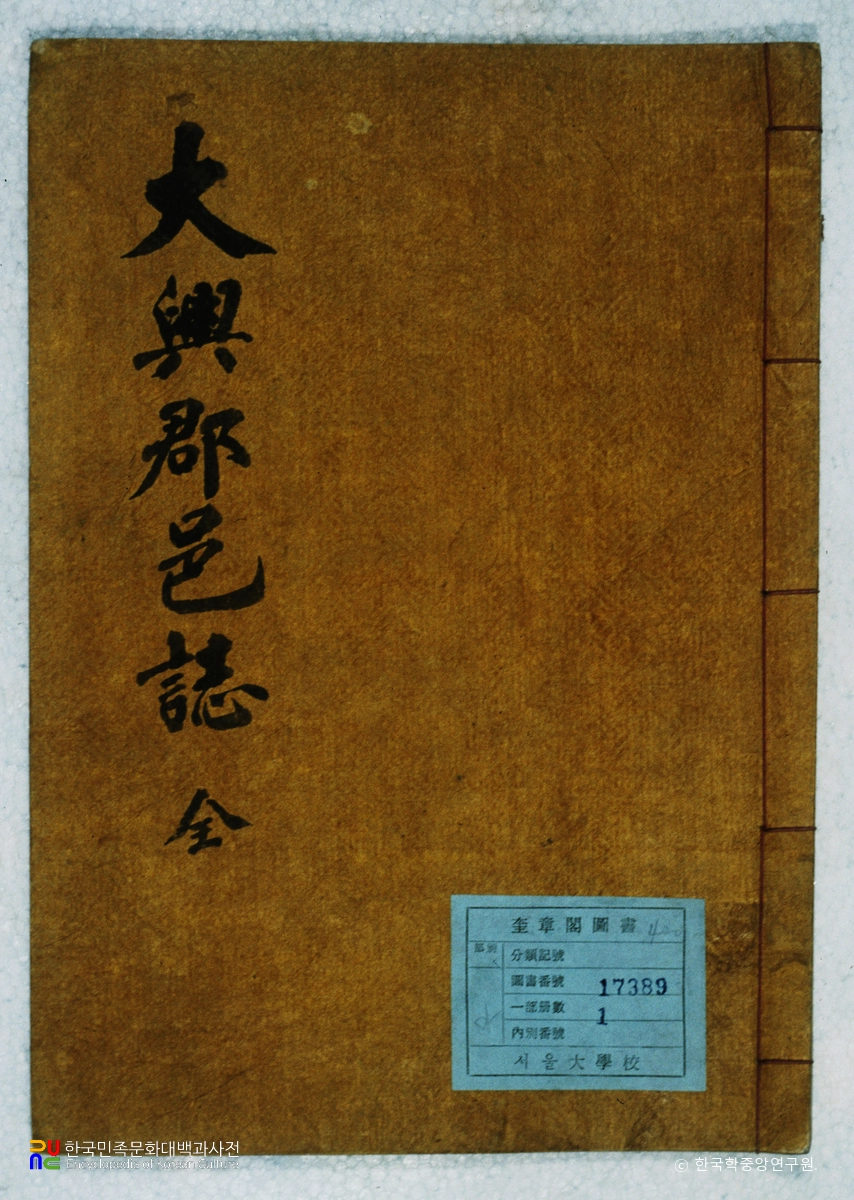 大興郡邑誌 全
奎章閣圖書
分類記號
圖書番號 17389
一部册數 1
內別番號
서울大學校
한국민족문화대백과사전
Encyclopedia of Korean Culture
© 한국학중앙연구원.